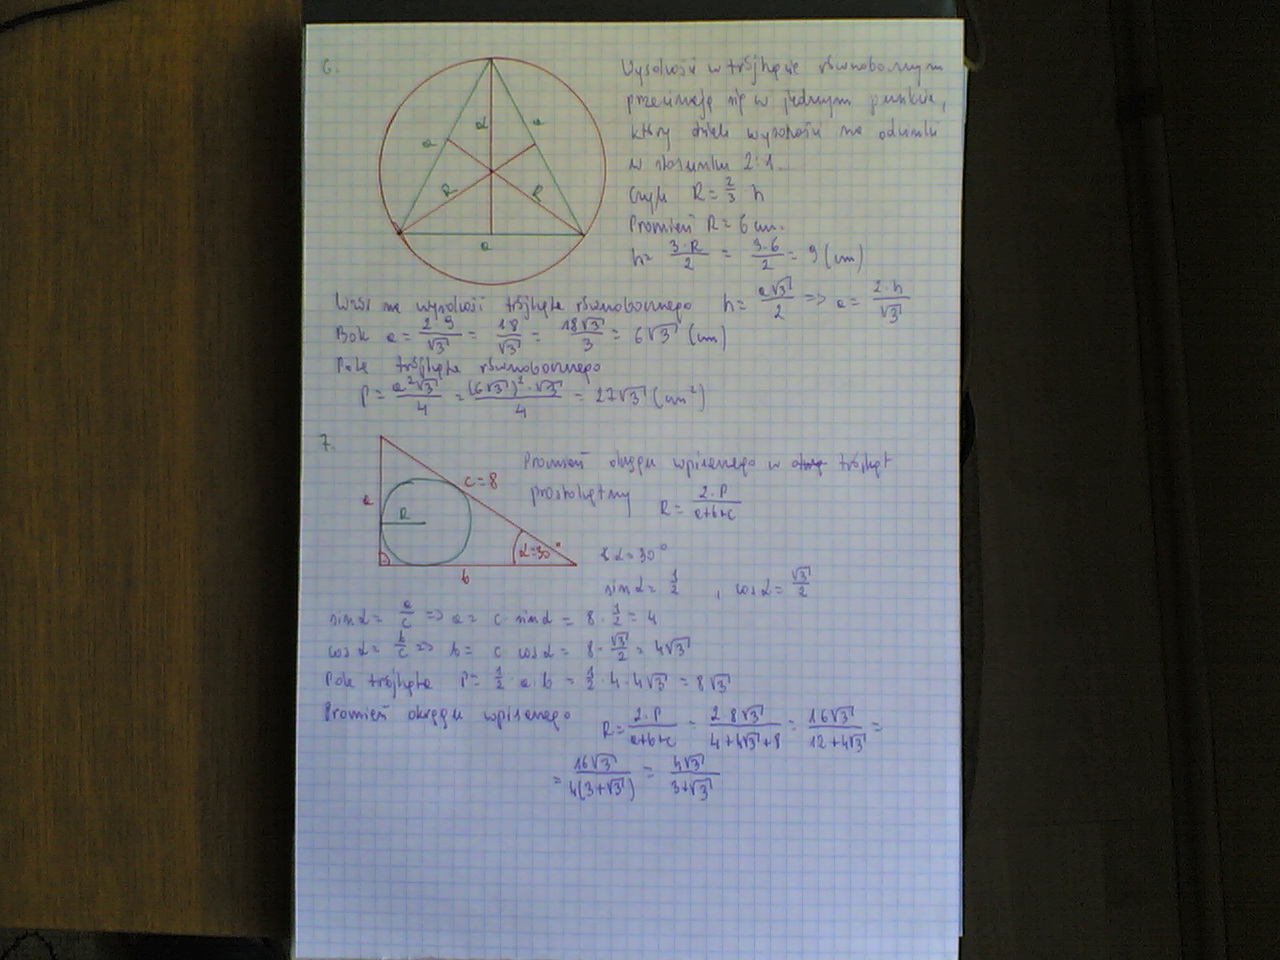 6.
Wysokości w trójkącie równobocznym
przecinają się w jednym punkcie,
który dzieli wysokości na odcinki
w stosunku 2:1.
Czyli R = 2/3 h
Promień R = 6 cm.
h = 3·R/2 = 3·6/2 = 9 (cm)
a
a
R
R
a
Wzór na wysokość trójkąta równobocznego h = a√3/2 => a = 2·h/√3
Bok a = 2·9/√3 = 18/√3 = 18√3/3 = 6√3 (cm)
Pole trójkąta równobocznego
P = a²√3/4 = (6√3)²·√3/4 = 27√3 (cm²)
7.
Promień okręgu wpisanego w trójkąt
prostokątny R = 2·P/a+b+c
c = 8
a
R
α=30°
b
∢α = 30°
sin α = 1/2 , cos α = √3/2
sin α = a/c => a = c · sin α = 8 · 1/2 = 4
cos α = b/c => b = c cos α = 8 · √3/2 = 4√3
Pole trójkąta P = 1/2 · a · b = 1/2 · 4 · 4√3 = 8√3
Promień okręgu wpisanego R = 2·P/a+b+c = 2 8√3/4+4√3+8 = 16√3/12+4√3 =
= 16√3/4(3+√3) = 4√3/3+√3